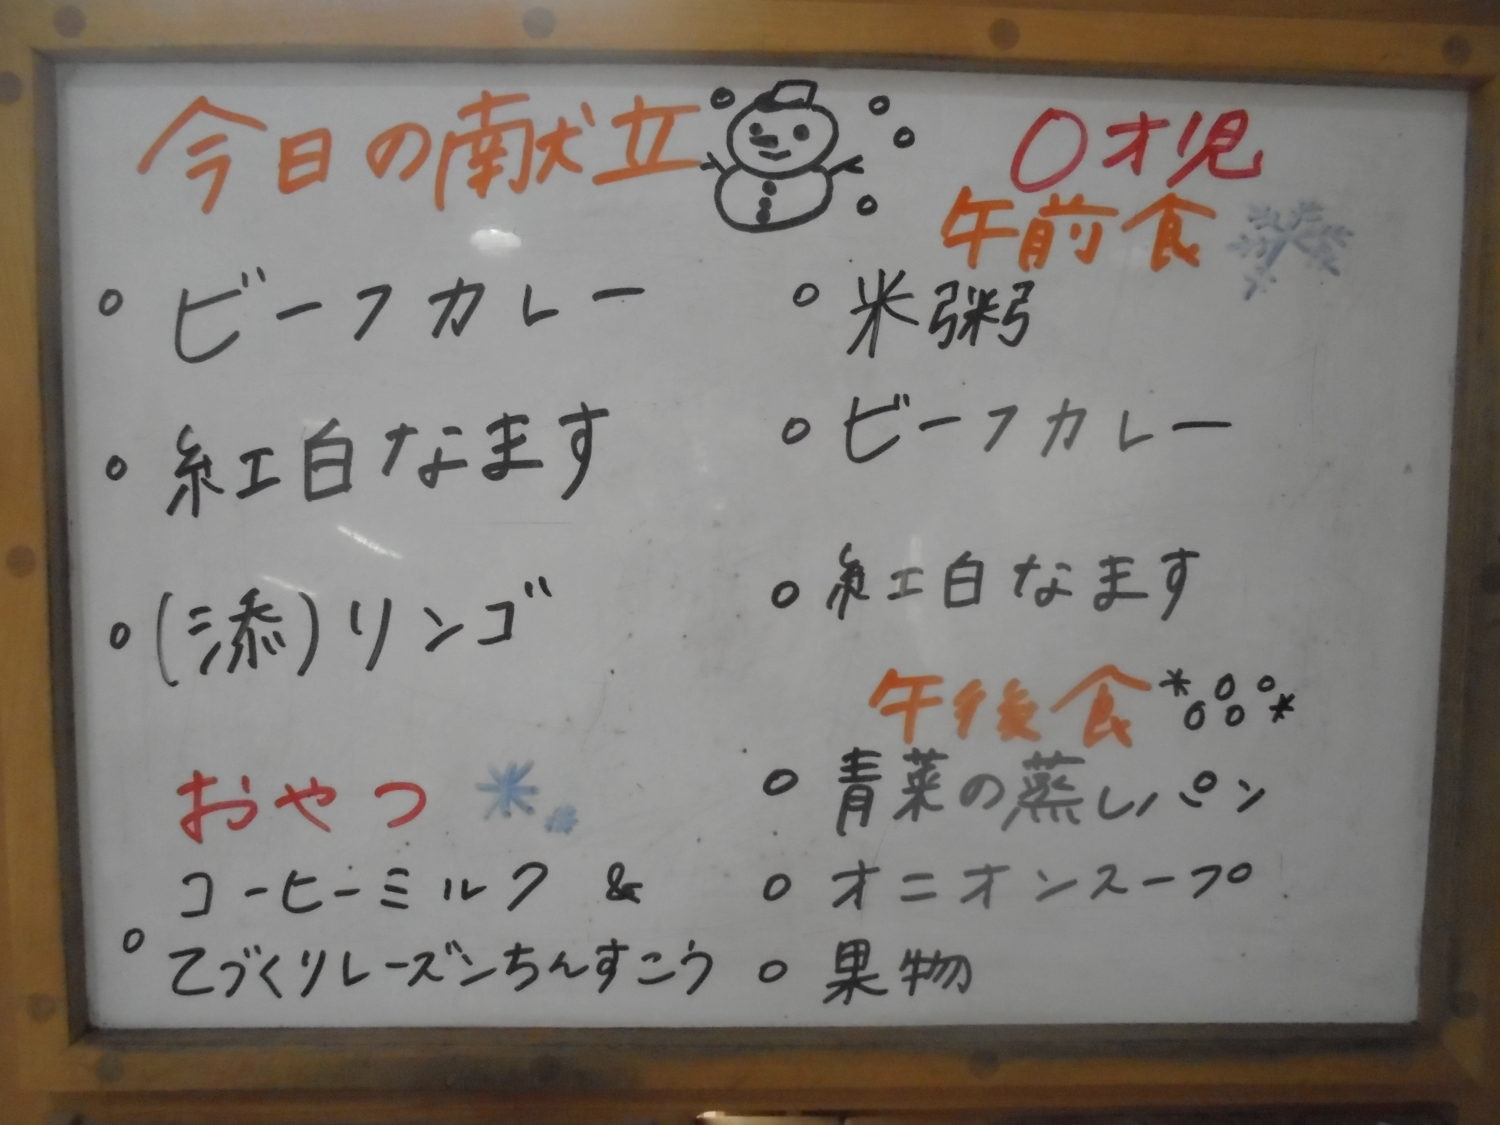 今日の献立
ビーフカレー
紅白なます
(添)リンゴ
おやつ
コーヒーミルク &
てづくりレーズンちんすこう
0才児
午前食
米粥
ビーフカレー
紅白なます
午後食
青菜の蒸しパン
オニオンスープ
果物